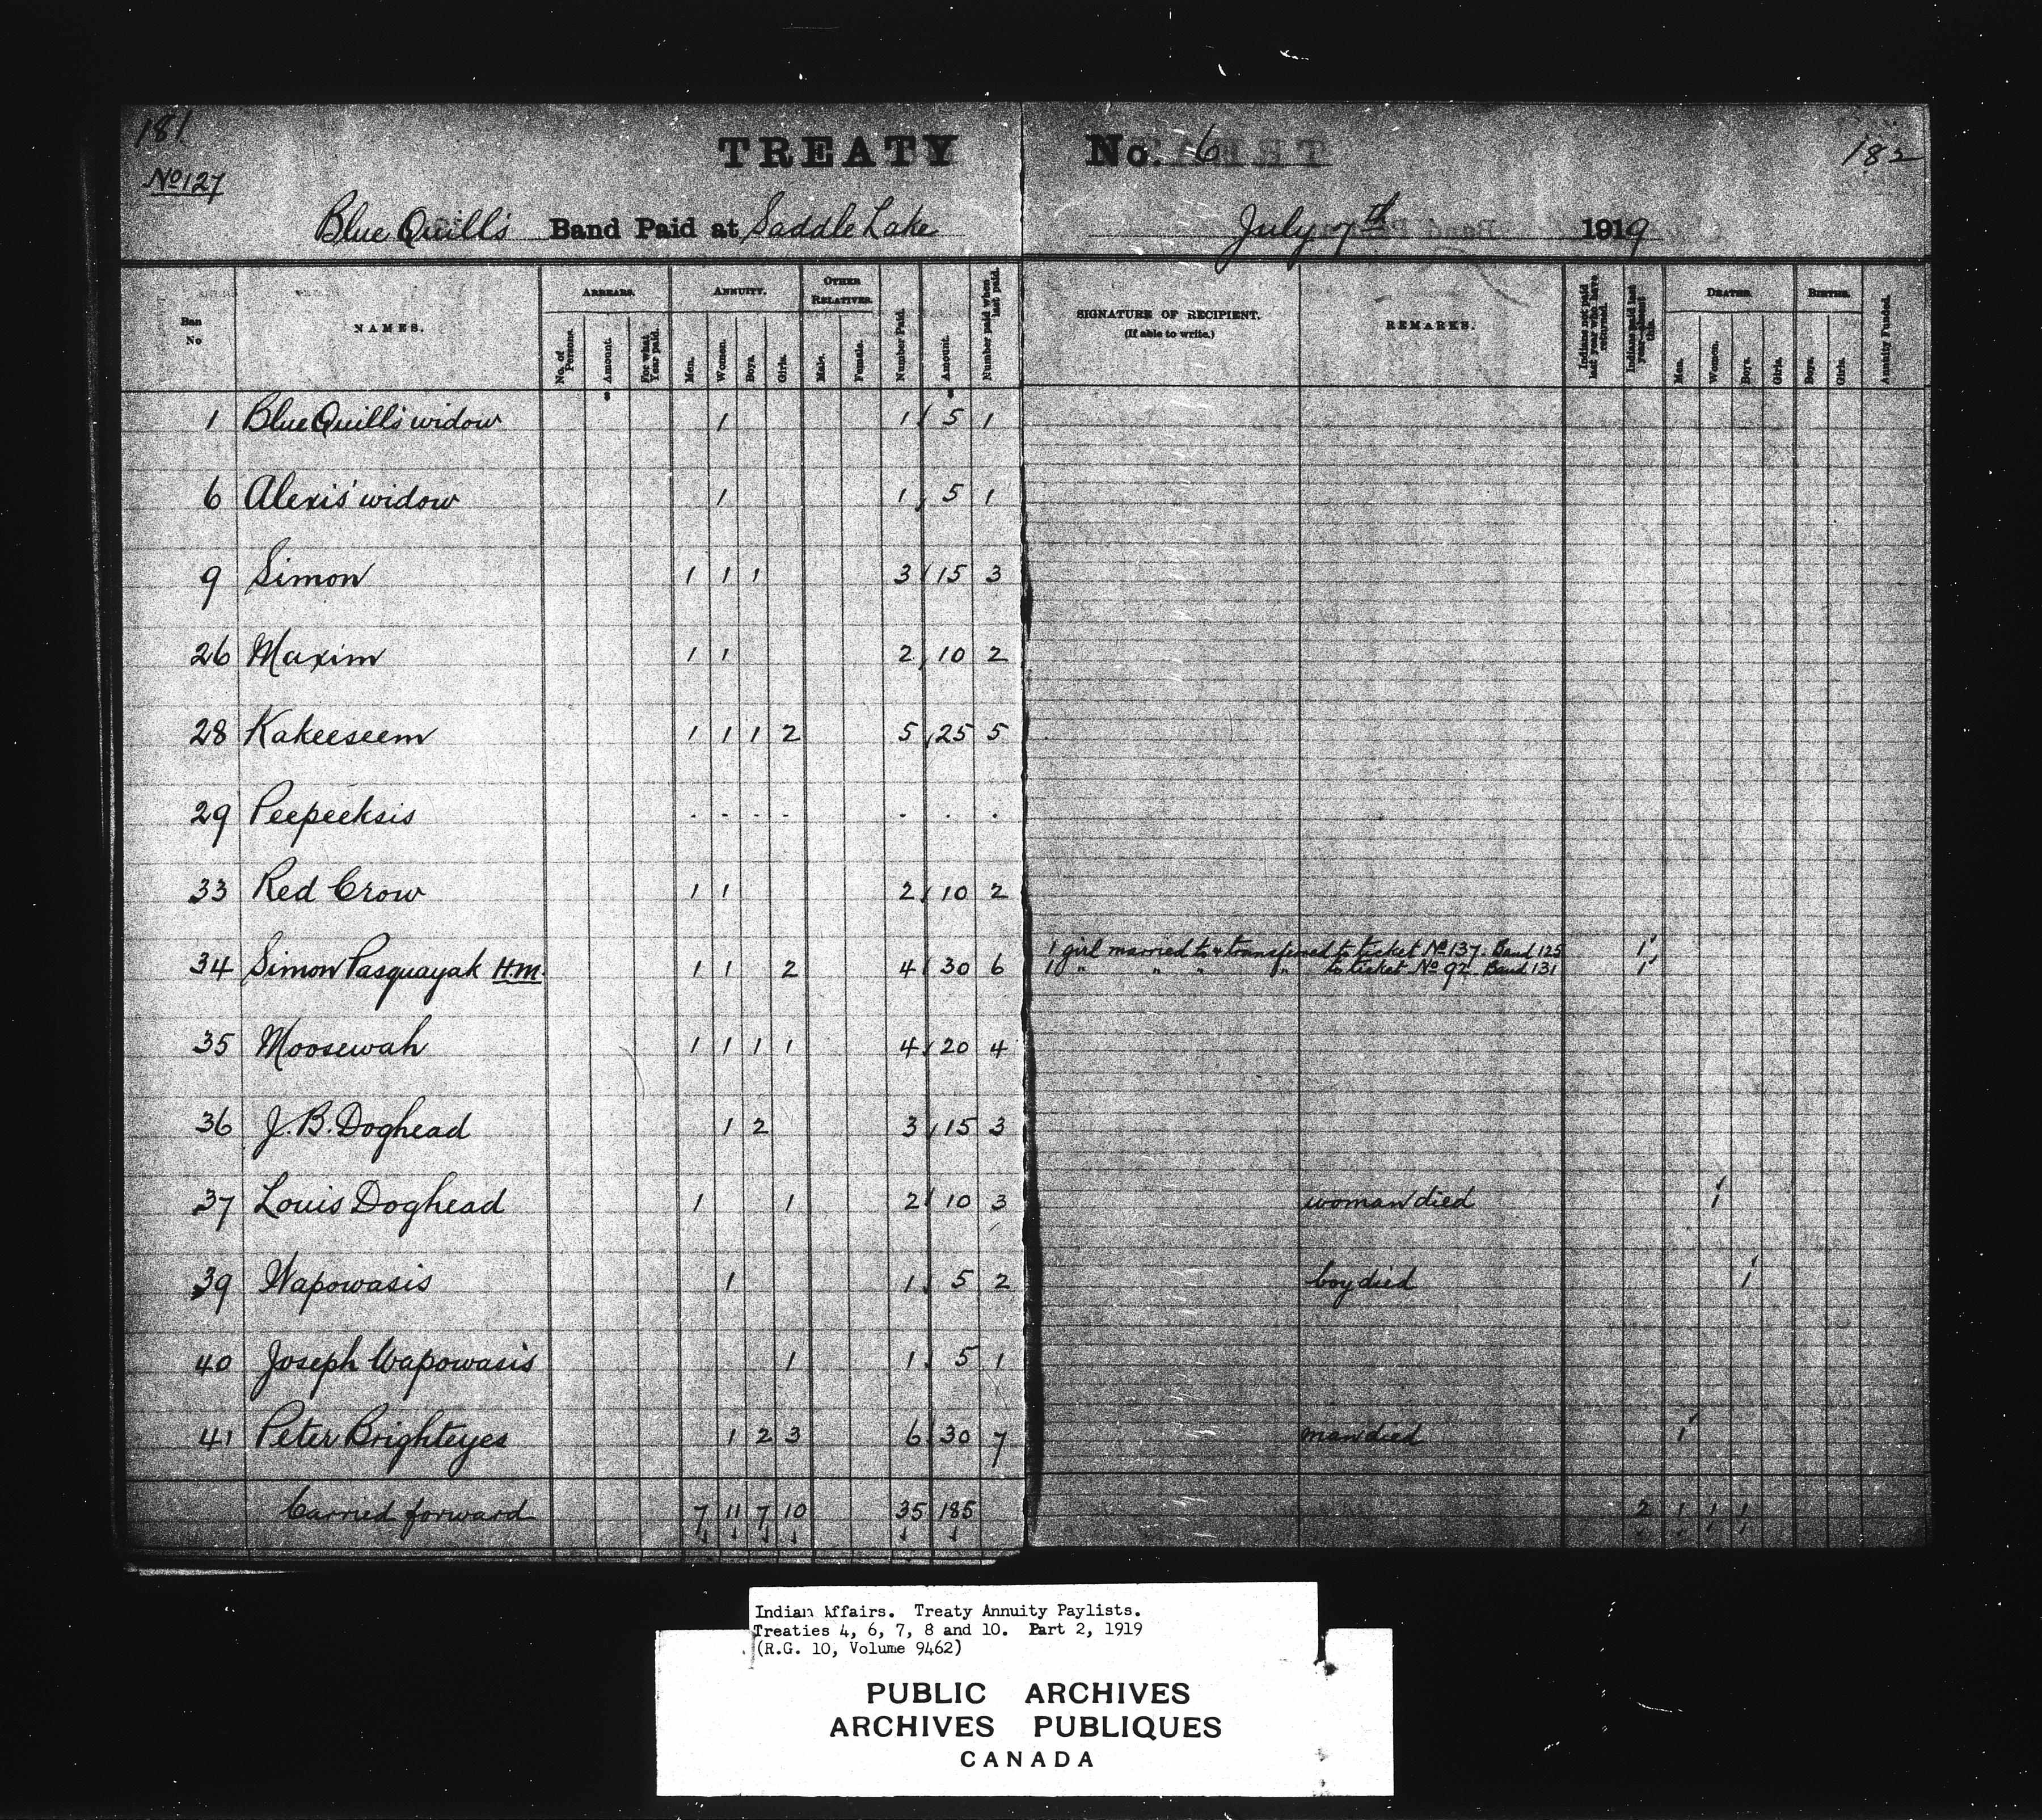 181
TREATY No. 6
182
No 127
Blue Quill's Band Paid at Saddle Lake July 7th 1919
Ban No
NAMES.
ARREARS.
No. of Persons.
Amount.
For what Year paid.
ANNUITY.
Men.
Women.
Boys.
Girls.
OTHER RELATIVES.
Male.
Female.
Number Paid.
Amount.
Number paid when last paid.
SIGNATURE OF RECIPIENT.
(If able to write.)
REMARKS.
Indians not paid last year who have returned.
Indians paid last year absent this.
DEATHS.
Men.
Women.
Boys.
Girls.
BIRTHS.
Boys.
Girls.
Annuity Funded.
1 Blue Quill's widow 1 1 5 1
6 Alexis' widow 1 1 5 1
9 Simon 1 1 1 3 15 3
26 Maxim 1 1 2 10 2
28 Kakeeseem 1 1 1 2 5 25 5
29 Peepeeksis . . . . . . .
33 Red Crow 1 1 2 10 2
34 Simon Pasquayak H.M. 1 1 2 4 30 6
1 girl married to & transferred to ticket No 137. Band 125 1
1 " " " " to ticket No 92. Band 131 1
35 Moosewah 1 1 1 1 4 20 4
36 J. B. Doghead 1 2 3 15 3
37 Louis Doghead 1 1 2 10 3 woman died 1
39 Wapowasis 1 1 5 2 boy died 1
40 Joseph Wapowasis 1 1 5 1
41 Peter Brighteyes 1 2 3 6 30 7 man died 1
Carried forward 7 11 7 10 35 185 2 1 1 1
Indian Affairs. Treaty Annuity Paylists.
Treaties 4, 6, 7, 8 and 10. Part 2, 1919
(R.G. 10, Volume 9462)
PUBLIC ARCHIVES
ARCHIVES PUBLIQUES
CANADA